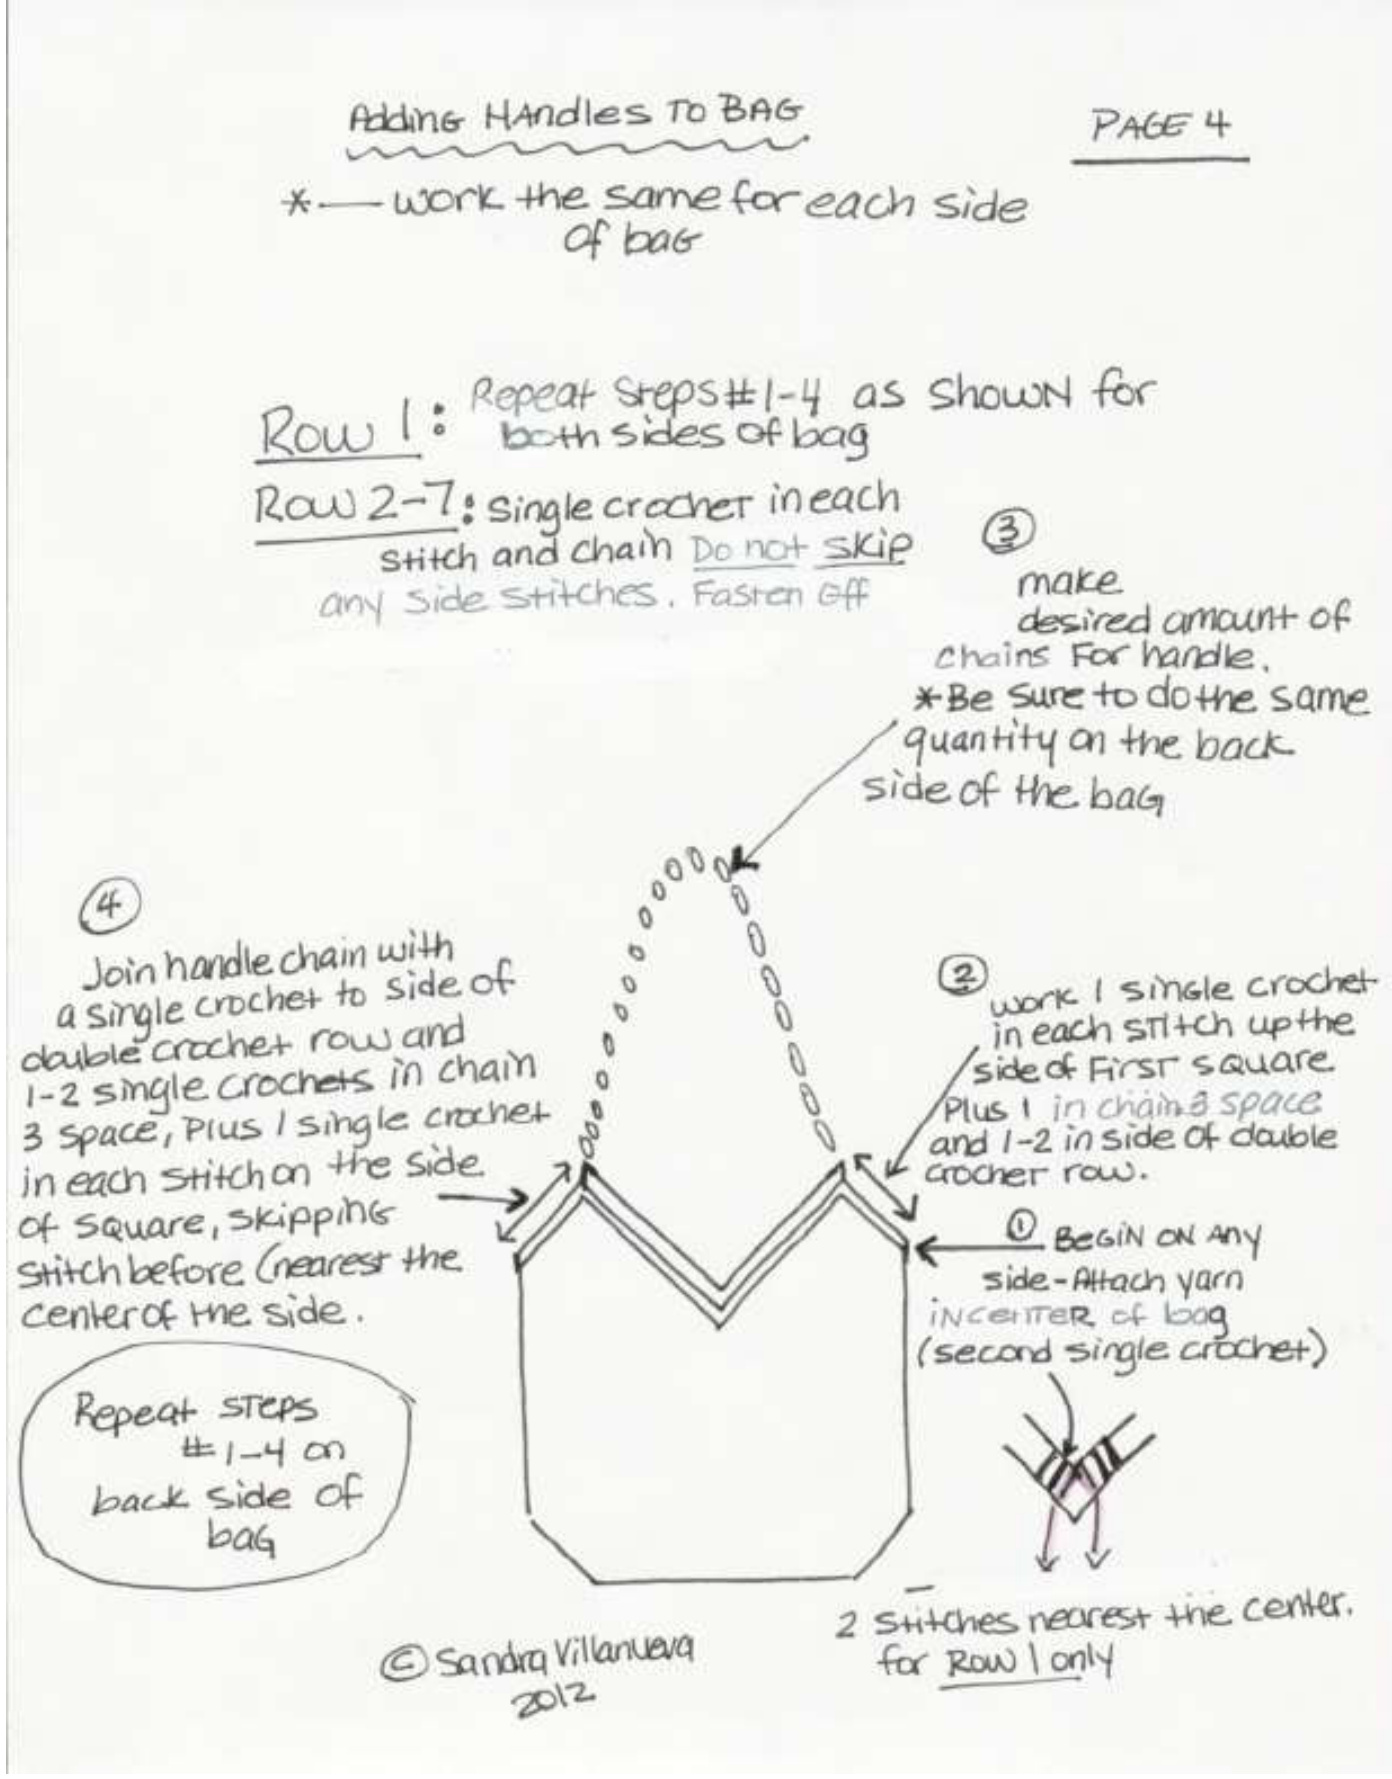 Adding Handles To BAG
PAGE 4
*— work the same for each side
of bag
Row 1: Repeat Steps #1-4 as shown for
both sides of bag
Row 2-7: Single crochet in each
stitch and chain Do not skip
any side stitches. Fasten Off
③
make
desired amount of
chains For handle.
*Be sure to do the same
quantity on the back
side of the bag
④
Join handle chain with
a single crochet to side of
double crochet row and
1-2 single crochets in chain
3 space, Plus 1 single crochet
in each stitch on the side
of square, skipping
stitch before (nearest the
center of the side.
②
work 1 single crochet
in each stitch up the
side of First square
Plus 1 in chain 3 space
and 1-2 in side of double
crochet row.
① BEGIN ON ANY
side-Attach yarn
in center of bag
(second single crochet)
Repeat steps
#1-4 on
back side of
bag
2 stitches nearest the center.
for Row 1 only
© Sandra Villanueva
2012